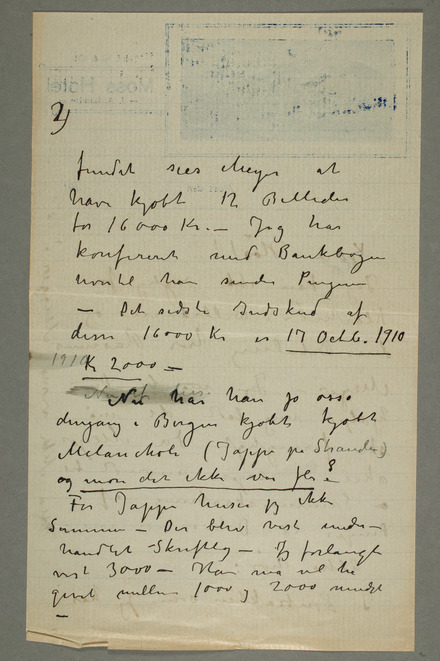 2)
fundet sees Meyer at
have kjøbt 12 Billeder
for 16 000 Kr. – Jeg har
konfereret med Bankbogen
hvortil han sender Pengene
– Det sidste Indskud af
disse 16000 Kr er 17 Octb. 1910
1910 Kr 2000 –
Nu har han jo også
dengang i Bergen kjøbt kjøbt
Melankoli (Jappe på Stranden)
og mon det ikke var fler?
For Jappe husker jeg ikke
Summen – Der blev vist under-
handlet skriftlig – Jeg forlangte
vist 3000 – Han må vel ha
givet mellem 1000 og 2000 mindst
–
Moss Hotel